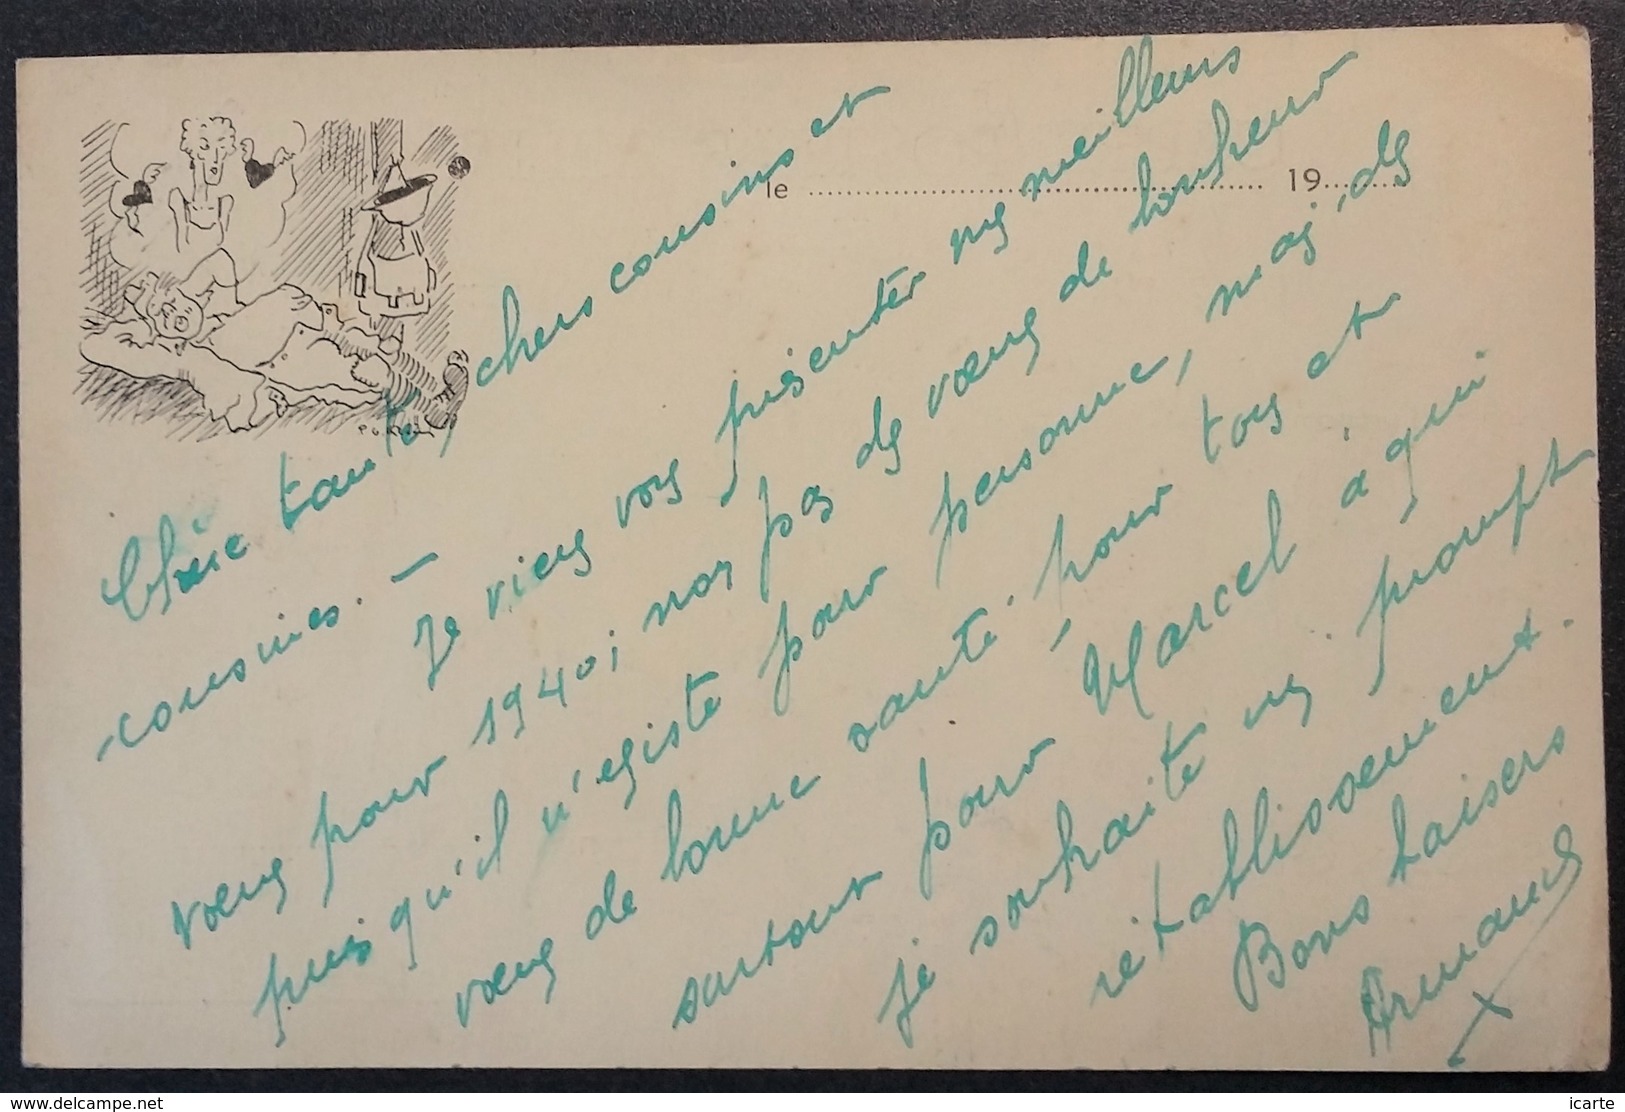 le ........................ 19........
Chère tante, chers cousins et
cousines. —
Je viens vous présenter mes meilleurs
vœux pour 1940; non pas des vœux de bonheur
puisqu'il n'existe pour personne, mais des
vœux de bonne santé pour tous et
surtout pour Marcel à qui
je souhaite un prompt
rétablissement.
Bons baisers
Armand
www.delcampe.net
icarte